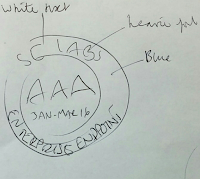 White text
heavier font
Blue
SC LABS
AAA
JAN-MAR 16
ENTERPRISE ENDPOINT